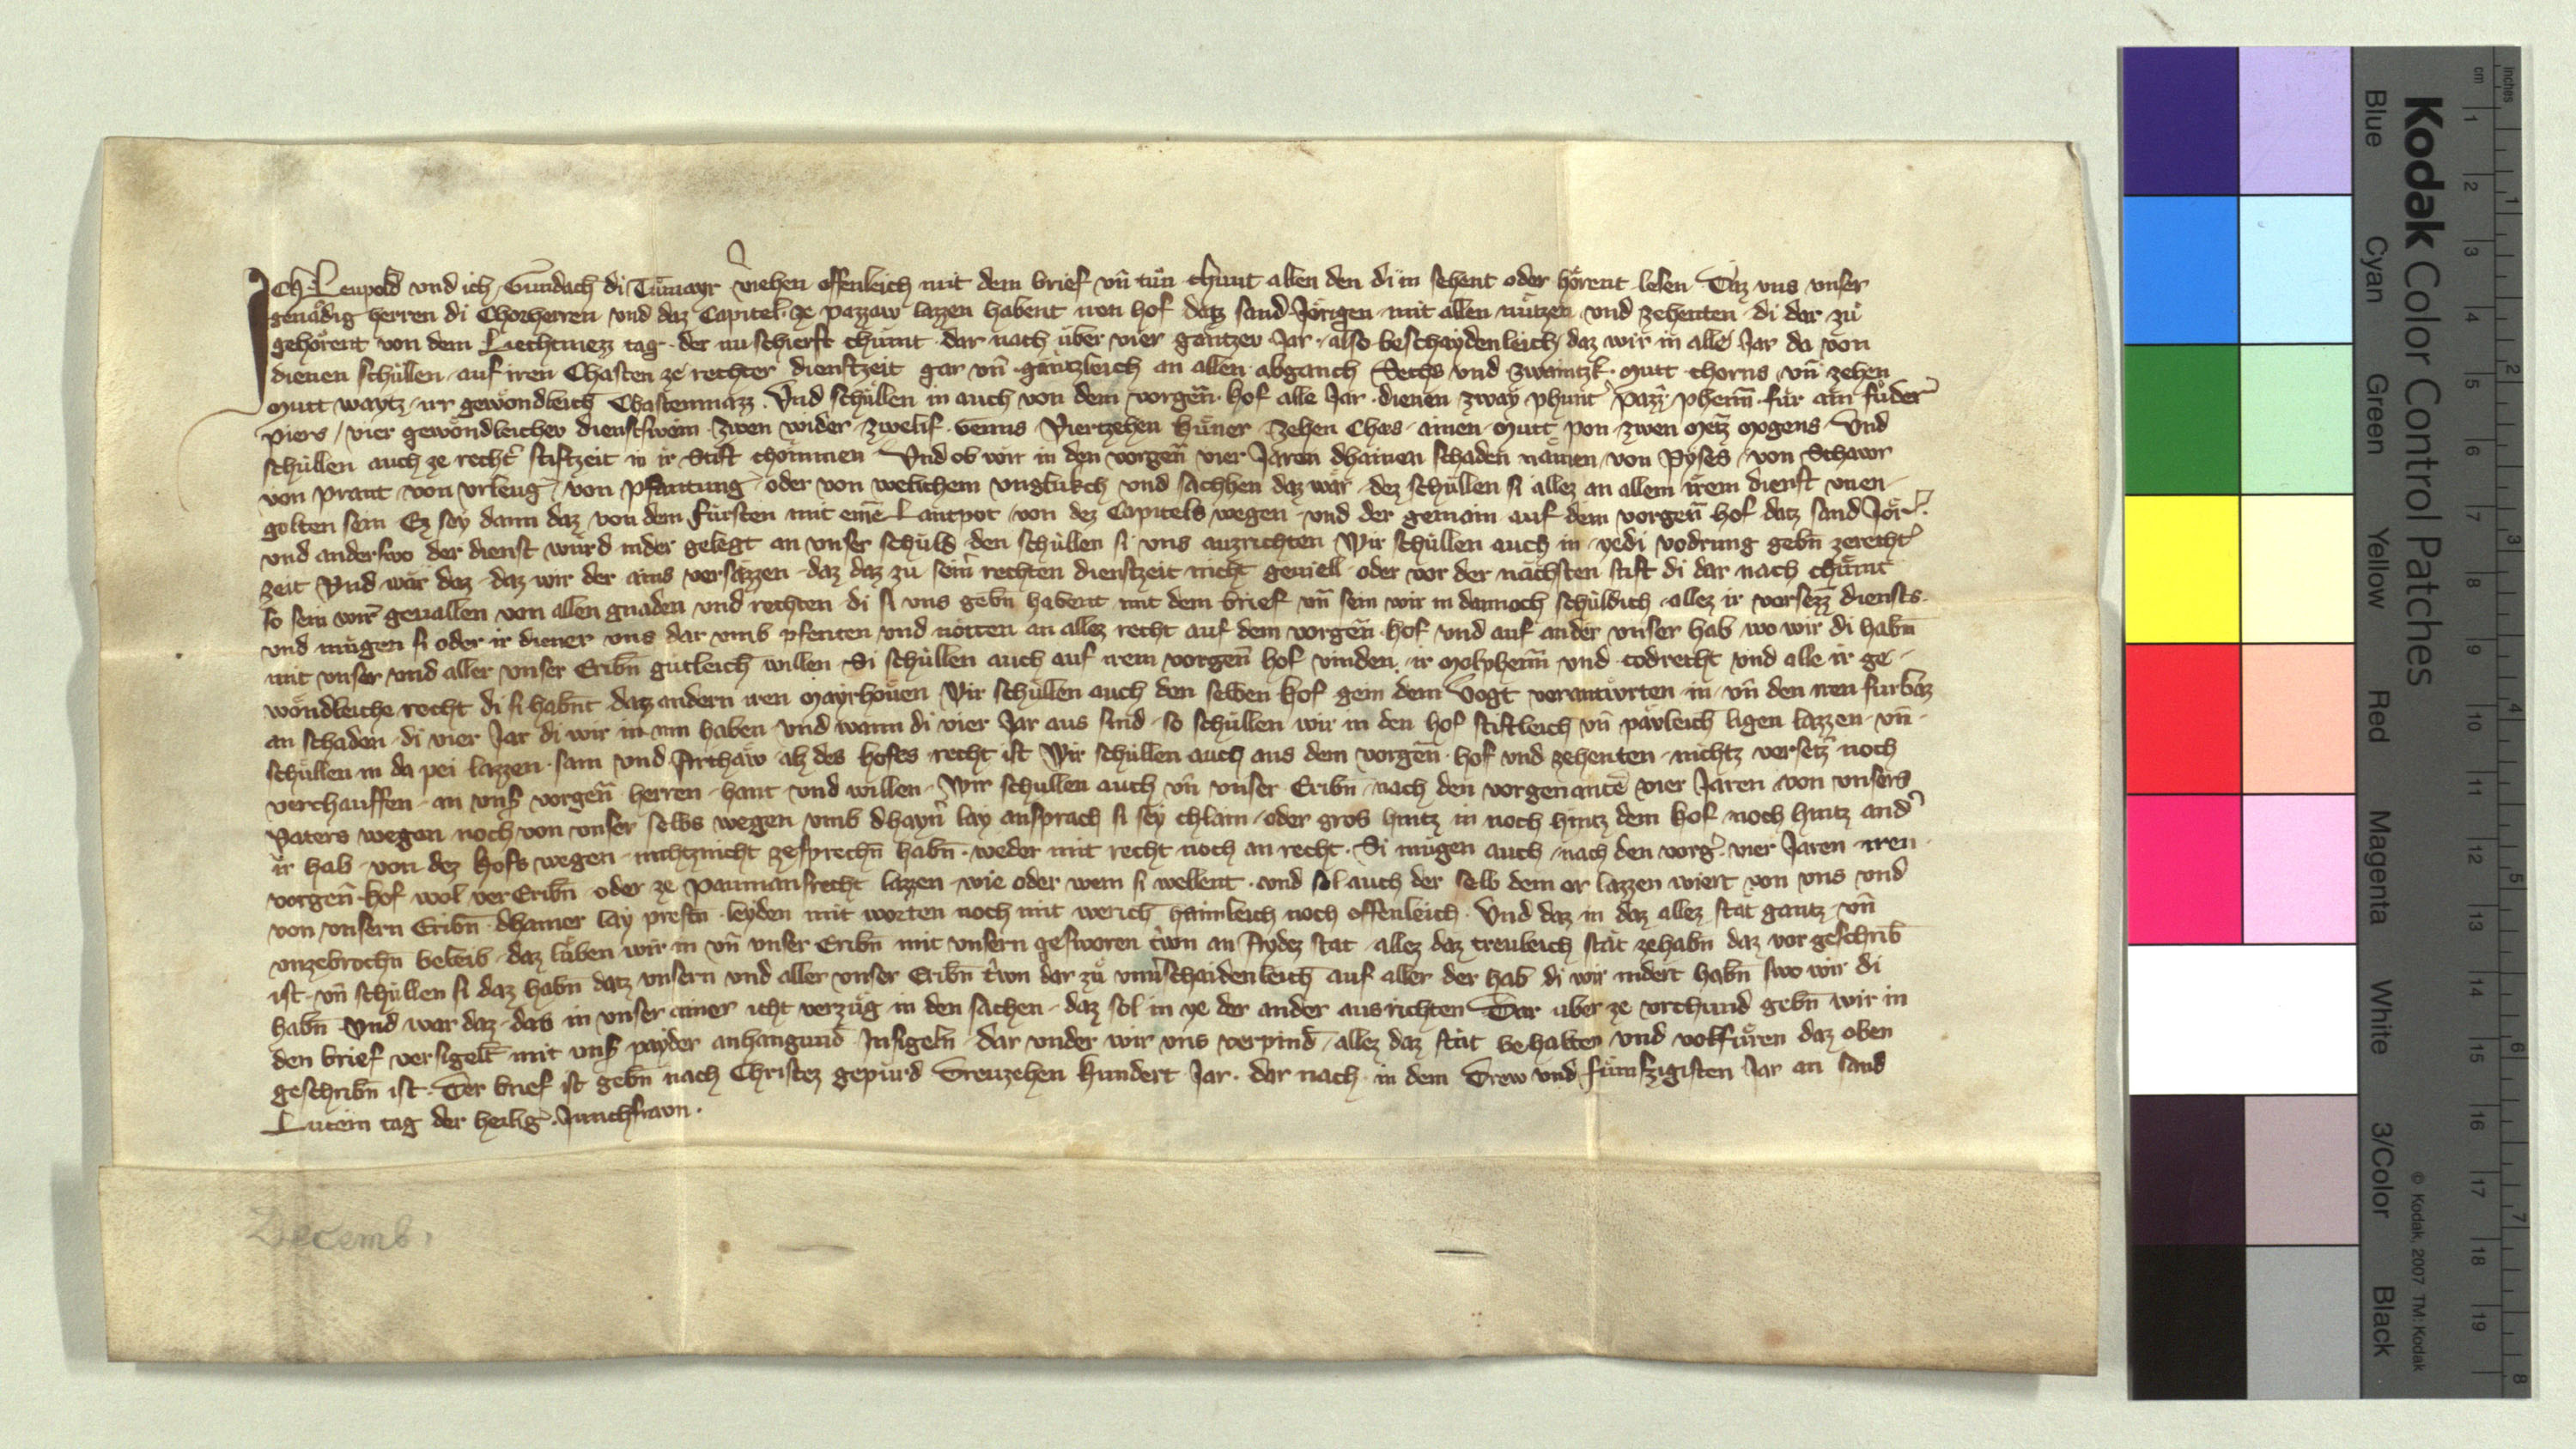 ICh Leupold vnd ich Gundach di Tůmayr viehen offenleich mit dem brief vn̄ tůn chunt allen den di in sehent oder hörent lesen Daz vns vnser
genädig herren di Chorherren vnd daz Capitel ze Pazzaw lazzen habent iren hof datz sand Jörigen mit allen nützen vnd zehenten di dar zů
gehörent von dem Liechtmezz tag der nu schierst chümt dar nach über vier gantzev Jar also beschaydenleich daz wir in allev Jar da von
dienen schüllen auf iren Chasten ze rechter dienstzeit gar vn̄ gäntzleich an allen abganch Sechs vnd zwaintzk mutt chorns vn̄ zehen
mutt waytz irr gewöndleich Chastenmazz Vnd schüllen in auch von dem vorgen̄ hof alle Jar dienen zway phunt pazz phenn̄ für ain füder
piers vier gewöndleichev dienstswein zwen wider zwelif Genns Viertzehen hüner zehen Ches ainen mutt pon zwen metz mogens Vnd
schüllen auch ze recht stiftzeit in ir Stift chömmen Vnd ob wir in den vorgen̄ vier Jaren dhainen schaden nämen von Pyses von Schawr
von prant von vrleug von pfantung oder von welichem vnglukch vnd sachhen daz wär dez schüllen si allez an allem irem dienst vnen
golten sein Ez sey dann daz von dem fürsten mit eine Lantpot von dez Capitels wegen vnd der gemain auf dem vorgen̄ hof datz sand Jör
vnd anderswo der dienst wurd nider gelegt an vnser schuld den schüllen si vns auzrichten Wir schüllen auch in yedi vodrung gebn̄ zerecht
zeit Vnd wär daz daz wir der ains versäzzen daz daz zu sein rechten dienstzeit nicht geuiell oder vor der nächsten stift di dar nach chümt
so sein wir geuallen von allen gnaden vnd rechten di si vns gebn habent mit dem brief vn̄ sein wir in dannoch schuldich allez ir versezz diensts
vnd mügen si oder ir diener vns dar vmb pfenten vnd nötten an allez recht auf dem vorgen̄ hof vnd auf ander vnser hab wo wir di habn̄
mit vnser vnd aller vnser Eribn̄ gütleich willen Si schüllen auch auf irem vorgen̄ hof vinden ir molphenn̄ vnd todrecht vnd alle ir ge
wöndleiche recht di si habnt datz andern iren Mayrhöuen Wir schüllen auch den selben hof gein dem Vogt verantwrten in vn̄ den iren fürbaz
an schaden di vier Jar di wir in inn haben vnd wann di vier Jar aus sind so schüllen wir in den hof stiftleich vn̄ päwleich ligen lazzen vn̄
schüllen in da pei lazzen sam vnd Arthaw alz des hofes recht ist Wir schüllen auch aus dem vorgen̄ hof vnd zehenten nichtz versetz noch
verchauffen an vns vorgen̄ herren hant vnd willen Wir schullen auch vn̄ vnser Eribn̄ nach den vorgenante vier Jaren von vnsers
Vaters wegen noch von vnser selbs wegen vmb dhayn lay ansprach si sey chlain oder gros hintz in noch hintz dem hof noch hintz and
ir hab von dez hofs wegen nichtznicht zesprechn̄ habn̄ weder mit recht noch an recht Si mügen auch nach den vorg vier Jaren iren
vorgen̄ hof wol ver Eribn̄ oder ze paumansrecht lazzen wie oder wem si wellent vnd sol auch der selb dem er lazzen wiert von vns vnd
von vnsern Eribn̄ dhainer lay presen leyden mit worten noch mit werich haimleich noch offenleich Vnd daz in daz allez stät gantz vn̄
vnzebrochn beleib daz lüben wir in vn̄ vnser Eribn̄ mit vnsern gesworen triwn an Aydez stat allez daz treuleich stät zehabn daz vor geschrib̄
ist vn̄ schüllen si daz habn̄ datz vnsern vnd aller vnser Eribn̄ triwn dar zů vnuerschaidenleich auf aller der hab di wir indert habn̄ swo wir di
habn̄ Vnd war daz das in vnser ainer icht verzüg in den sachen daz sol in ye der ander ausrichten Dar uber ze vrchund gebn̄ wir in
den brief versigelt mit vns payder anhangund Insigeln dar vnder wir vns verpind allez daz stät behalten vnd volfüren daz oben
geschribn̄ ist Der brief ist gebn̄ nach Christez gepürd Dreuzehen Hundert Jar dar nach in dem Drew vnd fümfzigisten Jar an sand
Lucein tag der heilig Junchfrawn
Decemb.
Kodak Color Control Patches
Blue Cyan Green Yellow Red Magenta White 3/Color Black
© Kodak, 2007 TM: Kodak
inches 1 2 3 4 5 6 7 8
cm 1 2 3 4 5 6 7 8 9 10 11 12 13 14 15 16 17 18 19